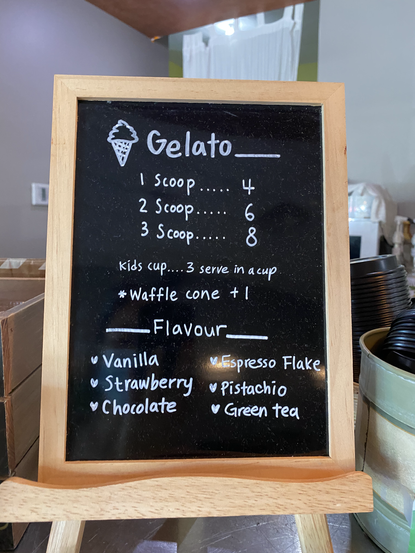 Gelato
1 Scoop..... 4
2 Scoop..... 6
3 Scoop..... 8
Kids cup....3 serve in a cup
*Waffle cone +1
Flavour
Vanilla
Strawberry
Chocolate
Espresso Flake
Pistachio
Green tea